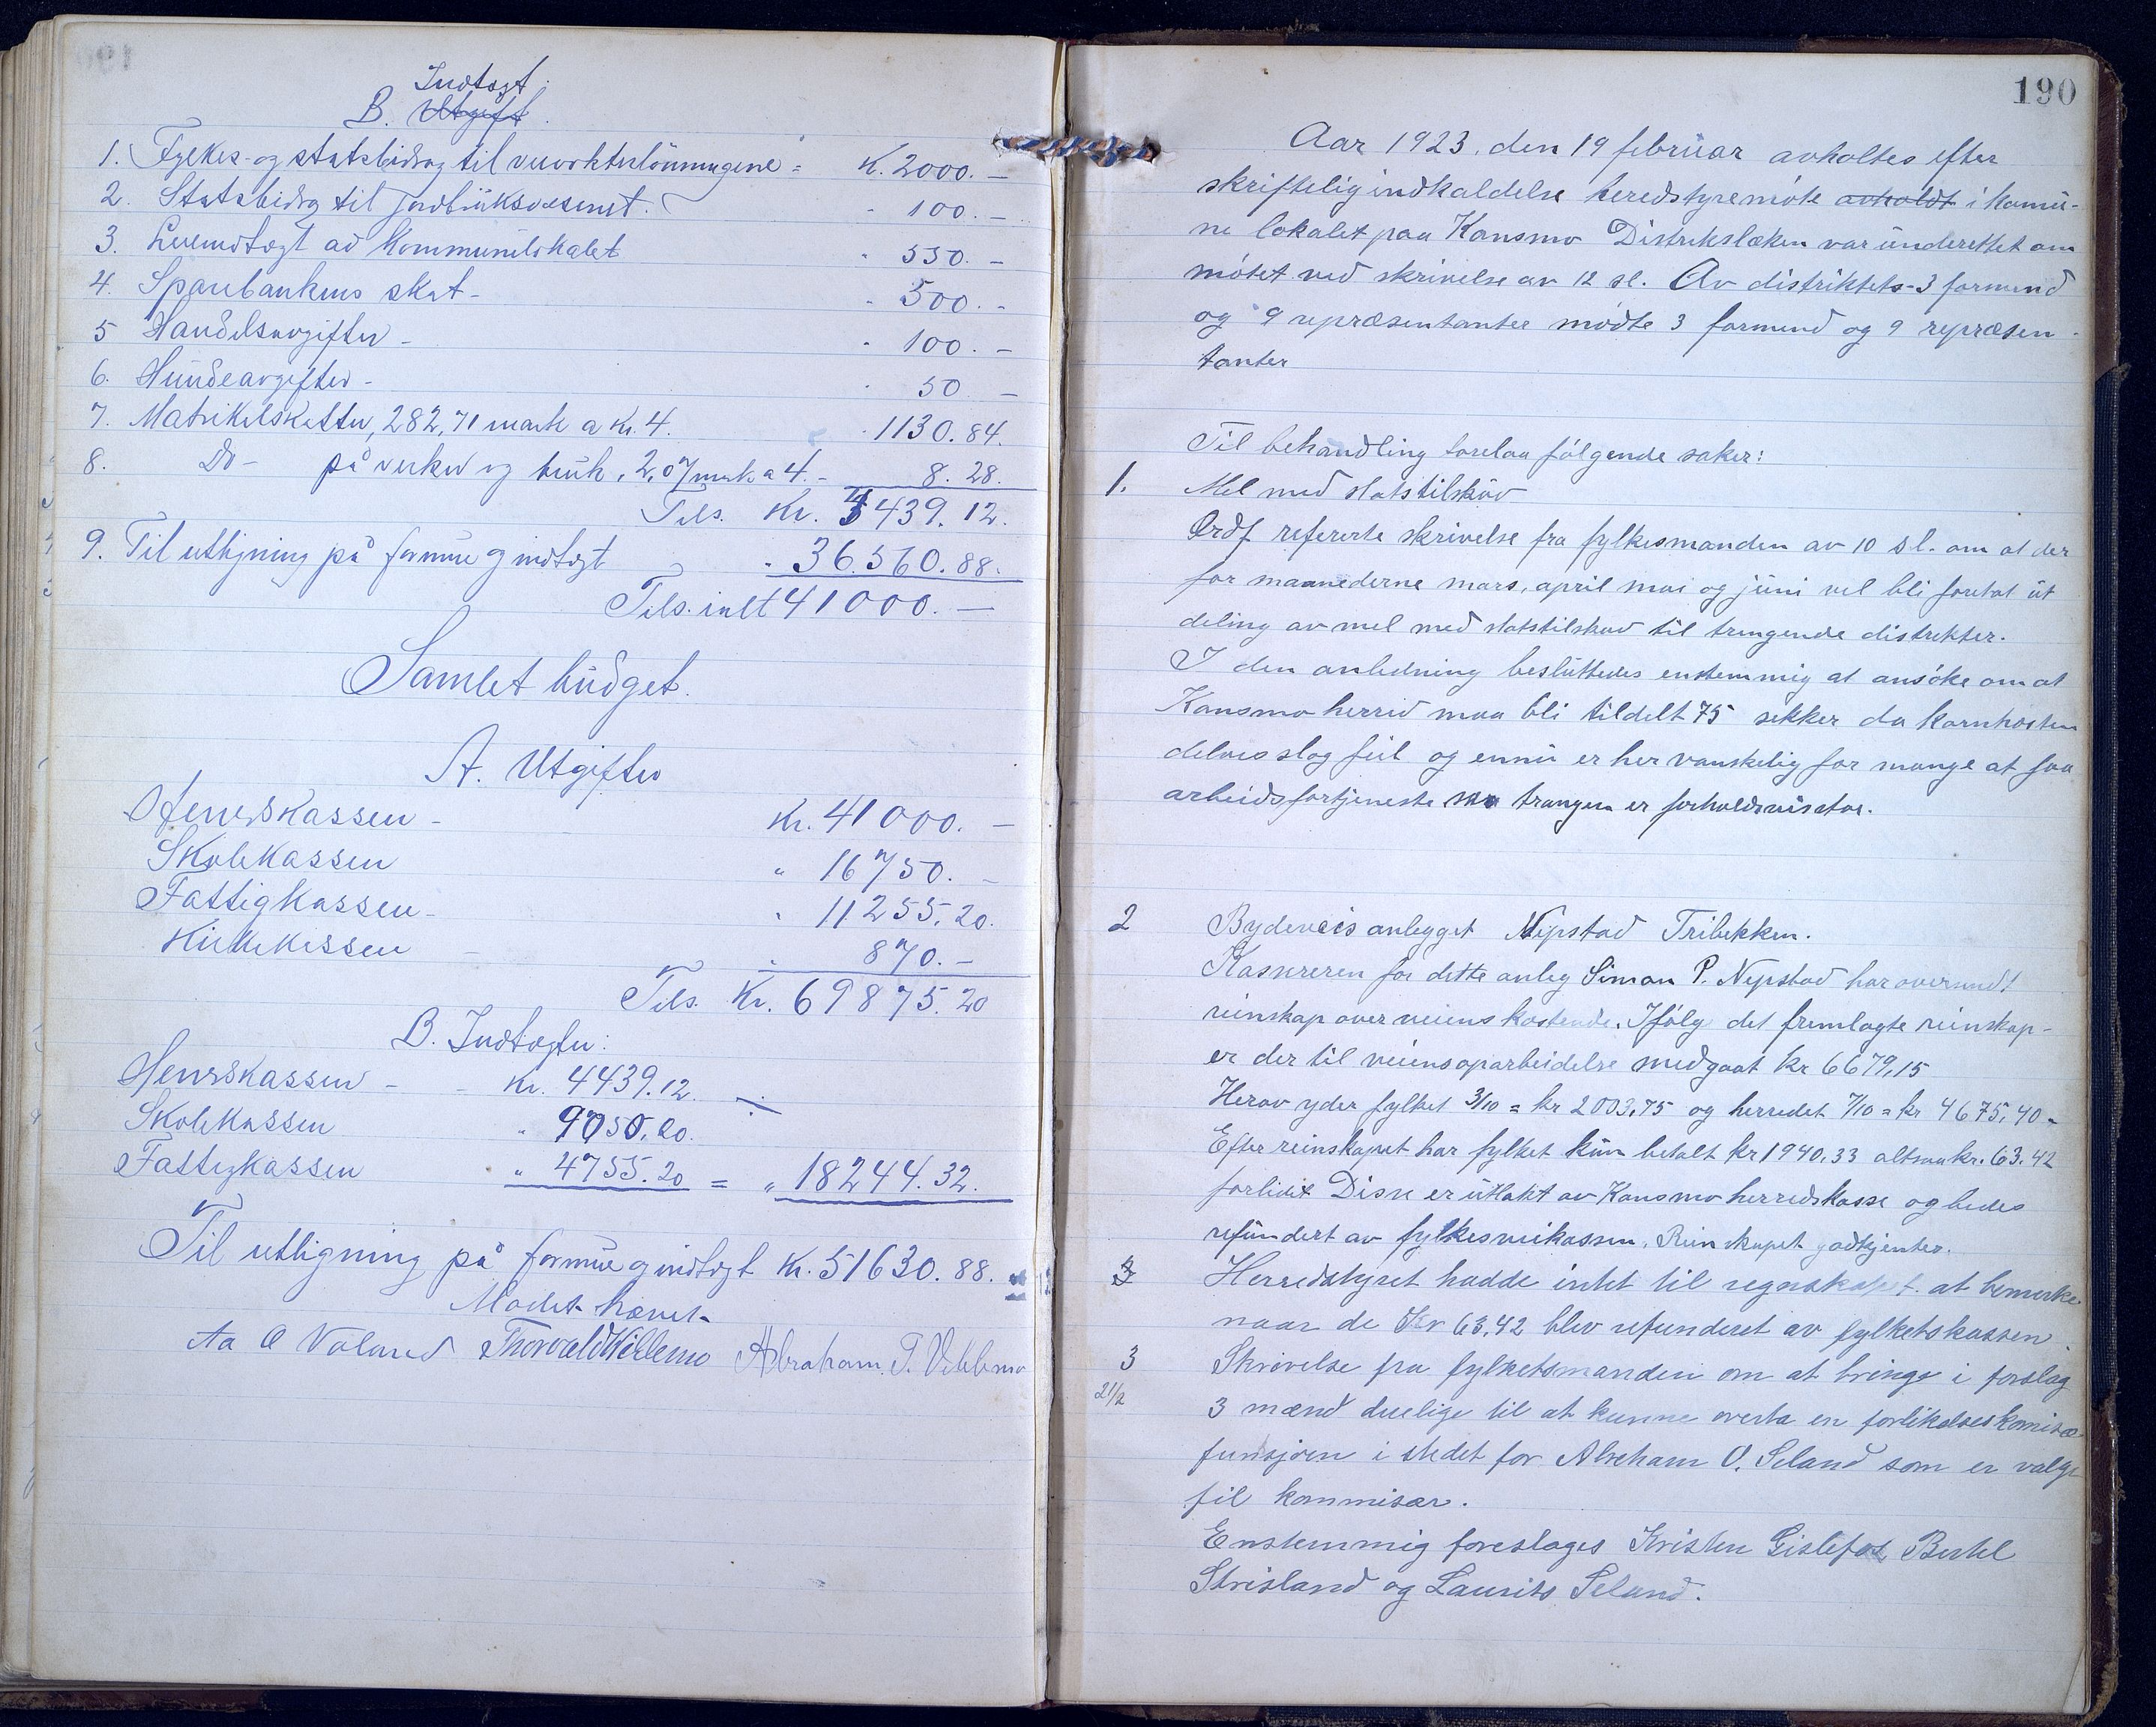 Indtægt.
B. Utgift.
1. Fylkes- og statsbidrag til veivokterlönningene = K. 2000. –
2. Statsbidrag til jordbruksvesenet. " 100. –
3. Leieindtægt av Kommunelokalet " 550. –
4. Sparebankens skat - " 500. –
5 Handelsavgifter - " 100. –
6. Hundeavgifter - " 50 –
7. Matrikelskatten, 282,71 mark a Kr. 4. " 1130. 84.
8. Do - på verker og bruk, 2,07 mark a 4. - 8. 28.
Tils. Kr. 4439. 12.
9. Til utligning på formue og indtægt " 36.560. 88.
Tils. ialt 41000. –
Samlet budget.
A. Utgifter
Herredskassen - Kr. 41000. –
Skolekassen " 16750. –
Fattigkassen - " 11255. 20.
Kirkekassen - " 870. –
Tils. Kr. 69875. 20
B. Indtægter:
Herredskassen - - Kr. 4439. 12. ⁒
Skolekassen " 9050. 20.
Fattigkassen " 4755. 20 = " 18244. 32.
Til utligning på formue og indtægt Kr. 51630. 88.
Mødet hævet.
Aa O Valand Thorvald Killemo Abraham T. Vehlemo
190
Aar 1923, den 19 februar avholtes efter
skriftelig indkaldelse heredstyremöte avholdt i komu-
ne lokalet paa Konsmo Distrikslæken var underettet om
mötet ved skrivelse av 12 sl. Av distriktets 3 formend
og 9 repræsentanter mödte 3 formend og 9 repræsen-
tanter
Til behandling forelaa fölgende saker:
1. Mel med statstilskuv
Ordf refererte skrivelse fra fylkesmanden av 10 sl. om at der
for maanederne mars, april mai og juni vel bli foretat ut
deling av mel med statstilskud til trengende distrikter.
I den anledning besluttedes enstemmig at ansöke om at
Konsmo herred maa bli tildelt 75 sekker da kornhösten
delvis slog feil og ennu er her vanskelig for mange at faa
arbeidsfortjeneste saa trangen er forholdsvis stor.
2 Bydeveis anlegget Nepstad Tribekken.
Kassereren for dette anleg Simon P. Nepstad har oversendt
reinskap over veiens kostende. Ifölg det fremlagte reinskap-
er der til veiens oparbeidelse medgaat kr 6679,15
Herav yder fylket 3/10 = kr 2003,75 og herredet 7/10 = kr 4675,40 -
Efter reinskapet har fylket kun betalt kr 1940,33 altsaa kr. 63.42
forlidt Disse er utlakt av Konsmo herredskasse og bedes
refundert av fylkesveikassen. Reinskapet godkjentes.
3 Herredstyret hadde intet til regnskapet at bemerke
naar de Kr 63,42 blev refunderet av fylketskassen.
3 Skrivelse fra fylketsmanden om at bringe i forslag
21/2 3 mænd duelige til at kunne overta en forlikelseskomisæ
funsjoen i stedet for Abreham O. Seland som er valgt
til kommisær.
Enstemmig foreslages Kristen Gislefos, Bertel
Strisland og Laurits Seland.